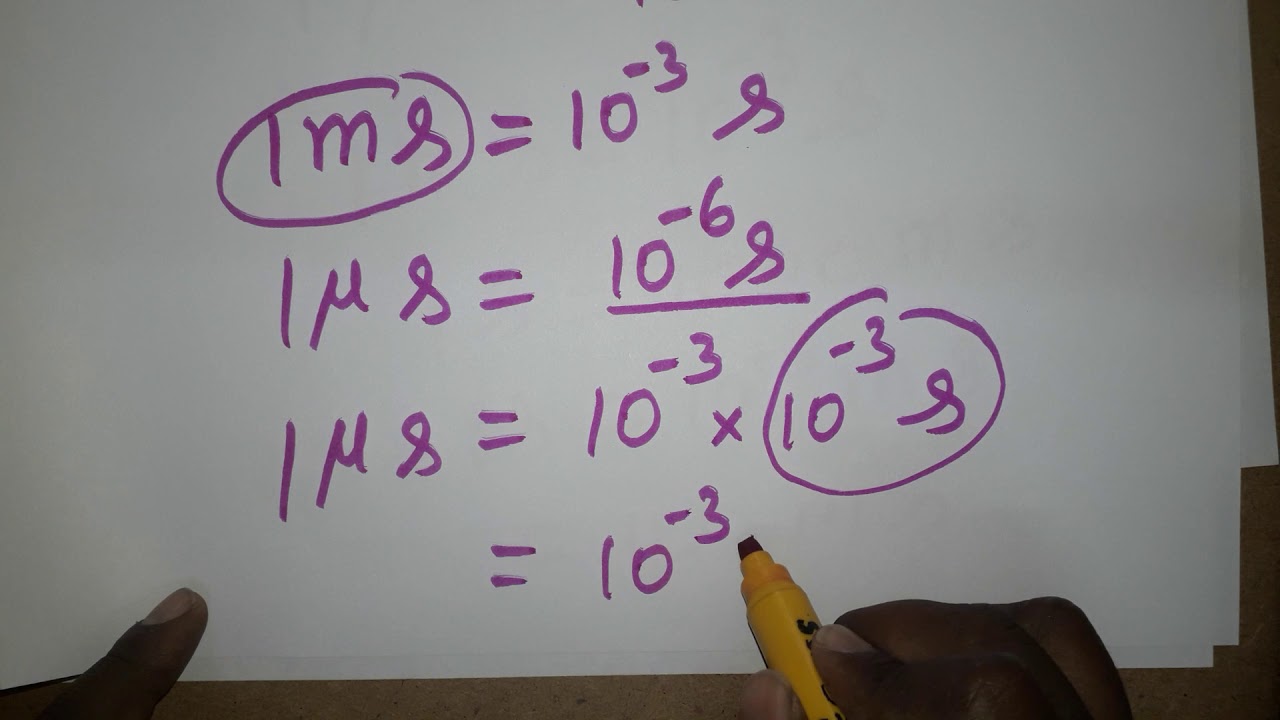 1ms = 10⁻³ s
1μs = 10⁻⁶s
1μs = 10⁻³ × 10⁻³ s
= 10⁻³